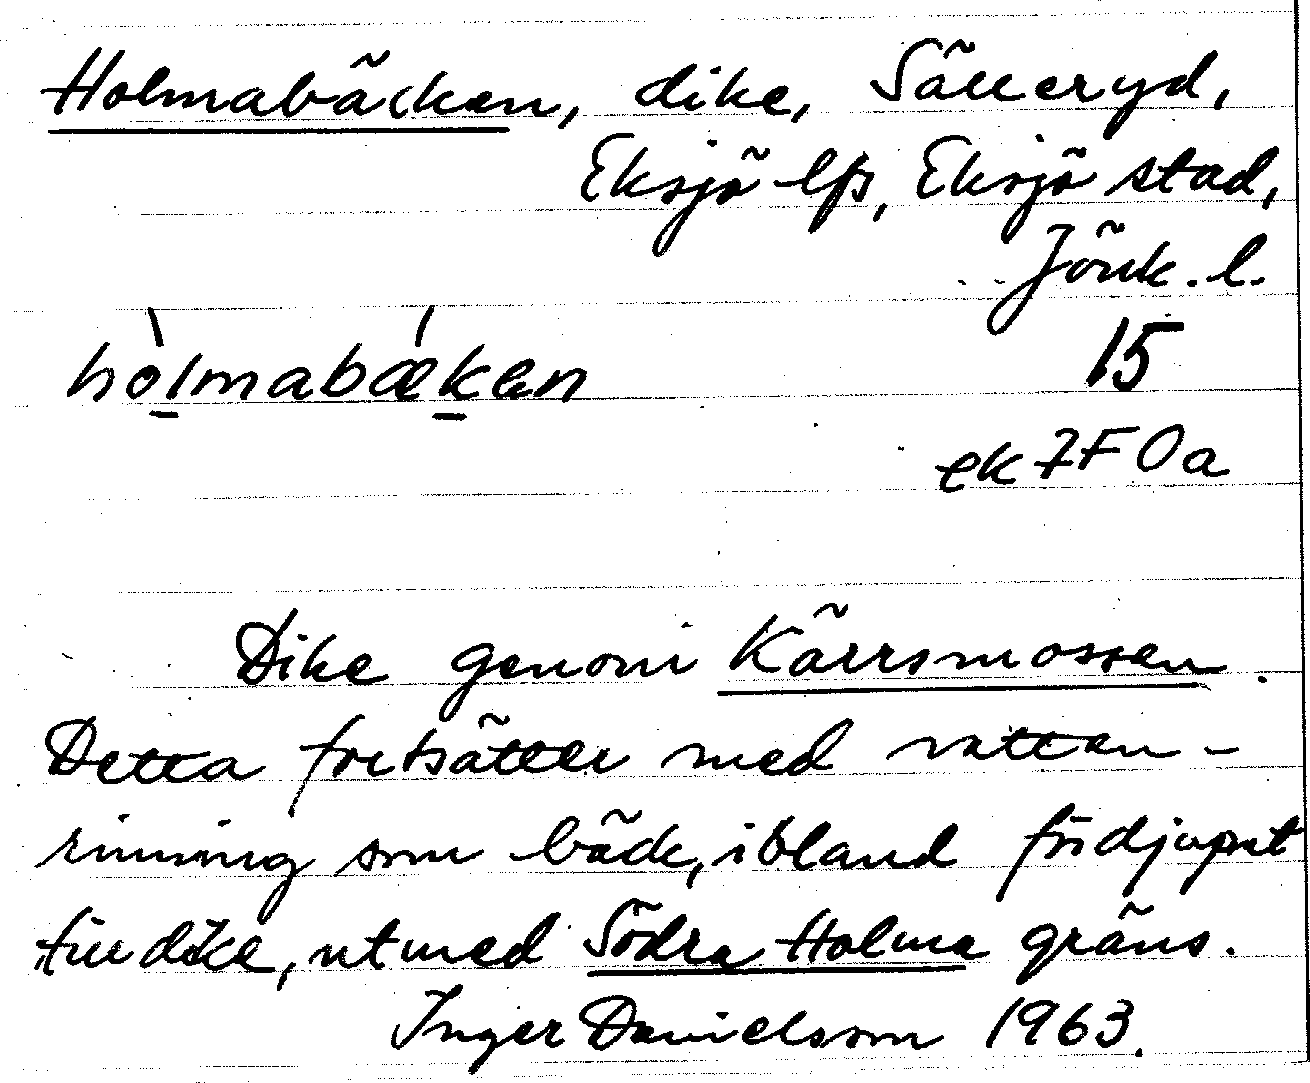 Holmabäcken, dike, Sälleryd,
Eksjö lfs, Eksjö stad,
Jönk. l.
hòlmabæken
15
ek 7F0a
Dike genom Kärrsmossen.
Detta fortsätter med vatten-
rinning som bäck, ibland fördjupat
till dike, utmed Södra Holma gräns.
Inger Danielsson 1963.